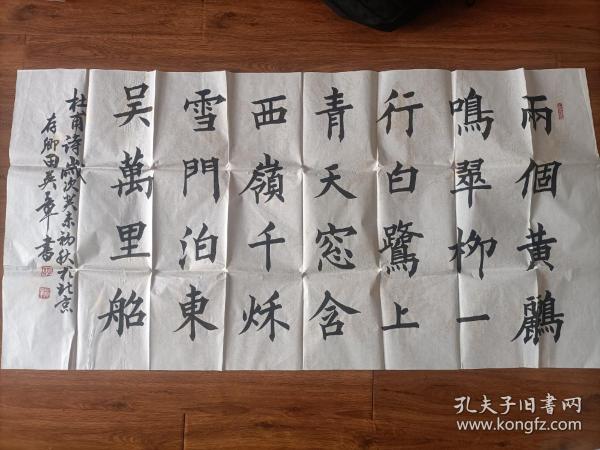 兩個黃鸝
鳴翠柳一
行白鷺上
青天窓含
西嶺千秌
雪門泊東
吴萬里船
杜甫詩歲次癸未初秋於北京
存卿田英章書
孔夫子旧書网
www.kongfz.com